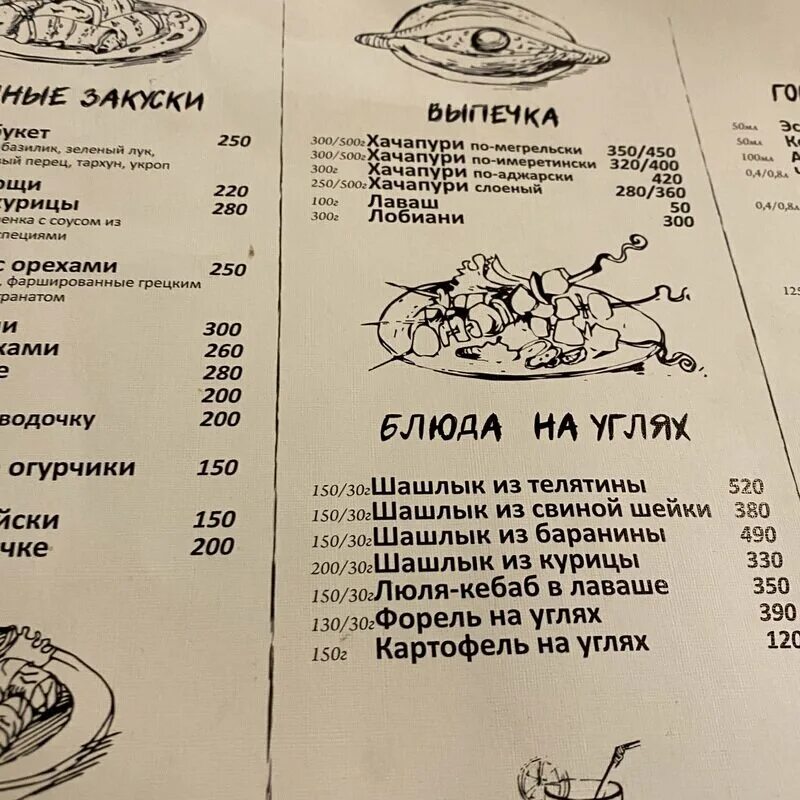 ЗАКУСКИ
250
базилик, зеленый лук,
перец, тархун, укроп
220
280
с соусом из
250
с орехами
, фаршированные грецким
300
260
280
200
водочку 200
огурчики 150
150
200
ВЫПЕЧКА
300/500г Хачапури по-мегрельски 350/450
300/500г Хачапури по-имеретински 320/400
300г Хачапури по-аджарски 420
250/500г Хачапури слоеный 280/360
100г Лаваш 50
300г Лобиани 300
БЛЮДА НА УГЛЯХ
150/30г Шашлык из телятины 520
150/30г Шашлык из свиной шейки 380
150/30г Шашлык из баранины 490
200/30г Шашлык из курицы 330
150/30г Люля-кебаб в лаваше 350
130/30г Форель на углях 390
150г Картофель на углях 120
50мл
50мл
100мл
0,4/0,8л
0,4/0,8л